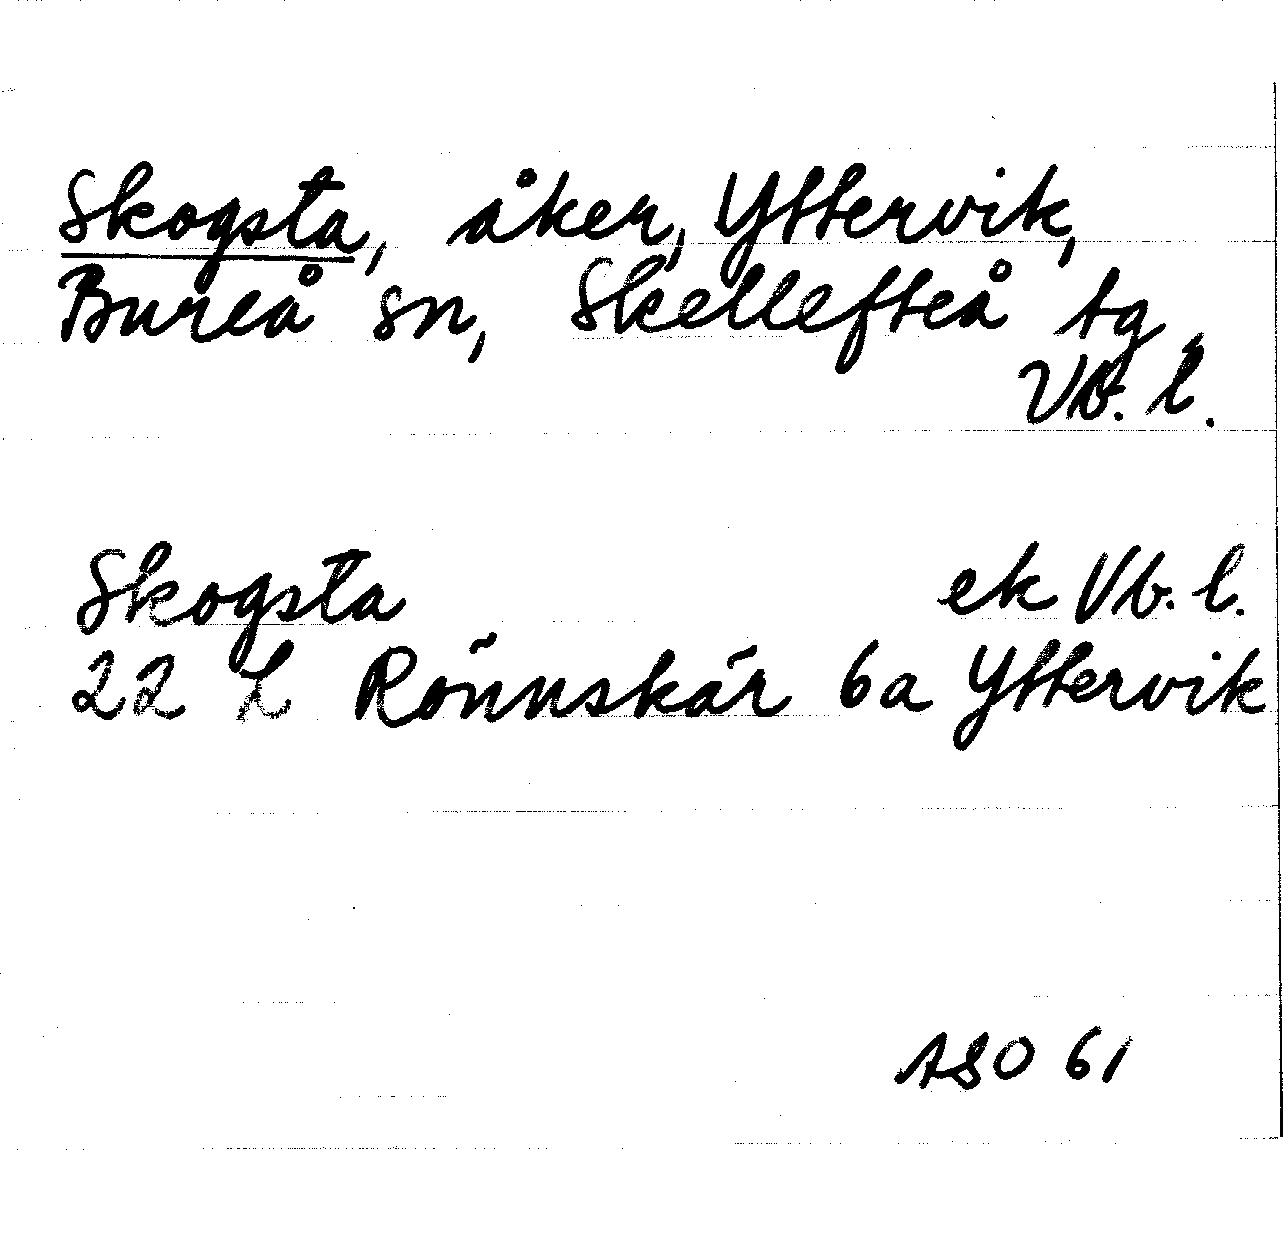 Skogsta, åker, Yttervik,
Bureå sn, Skellefteå tg
Vb. l.
Skogsta ek Vb. l.
22 L Rönnskär 6a Yttervik
ASO 61